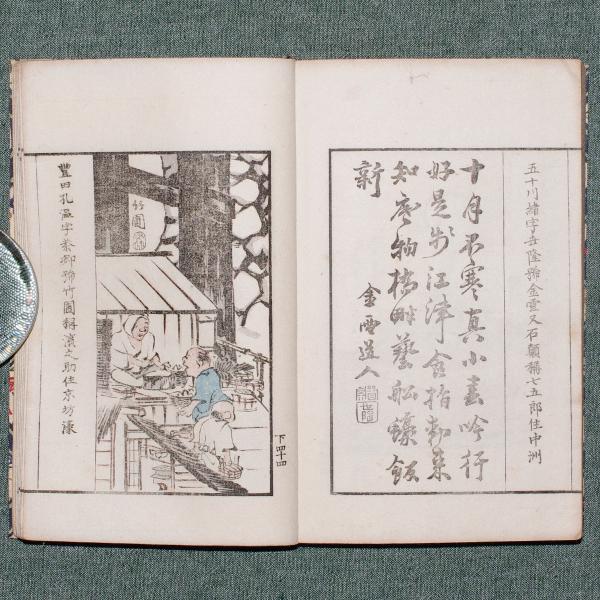 五十川緒字吉隆號金雲又石顛稱七五郎住中洲
十月不寒真小春吟行
好是步江津食指動來
知底物橋畔藝船蠔飯
新
金雲道人
竹圃
豐田孔温字恭卿號竹圃稱濱之助住京坊湊
下四十四